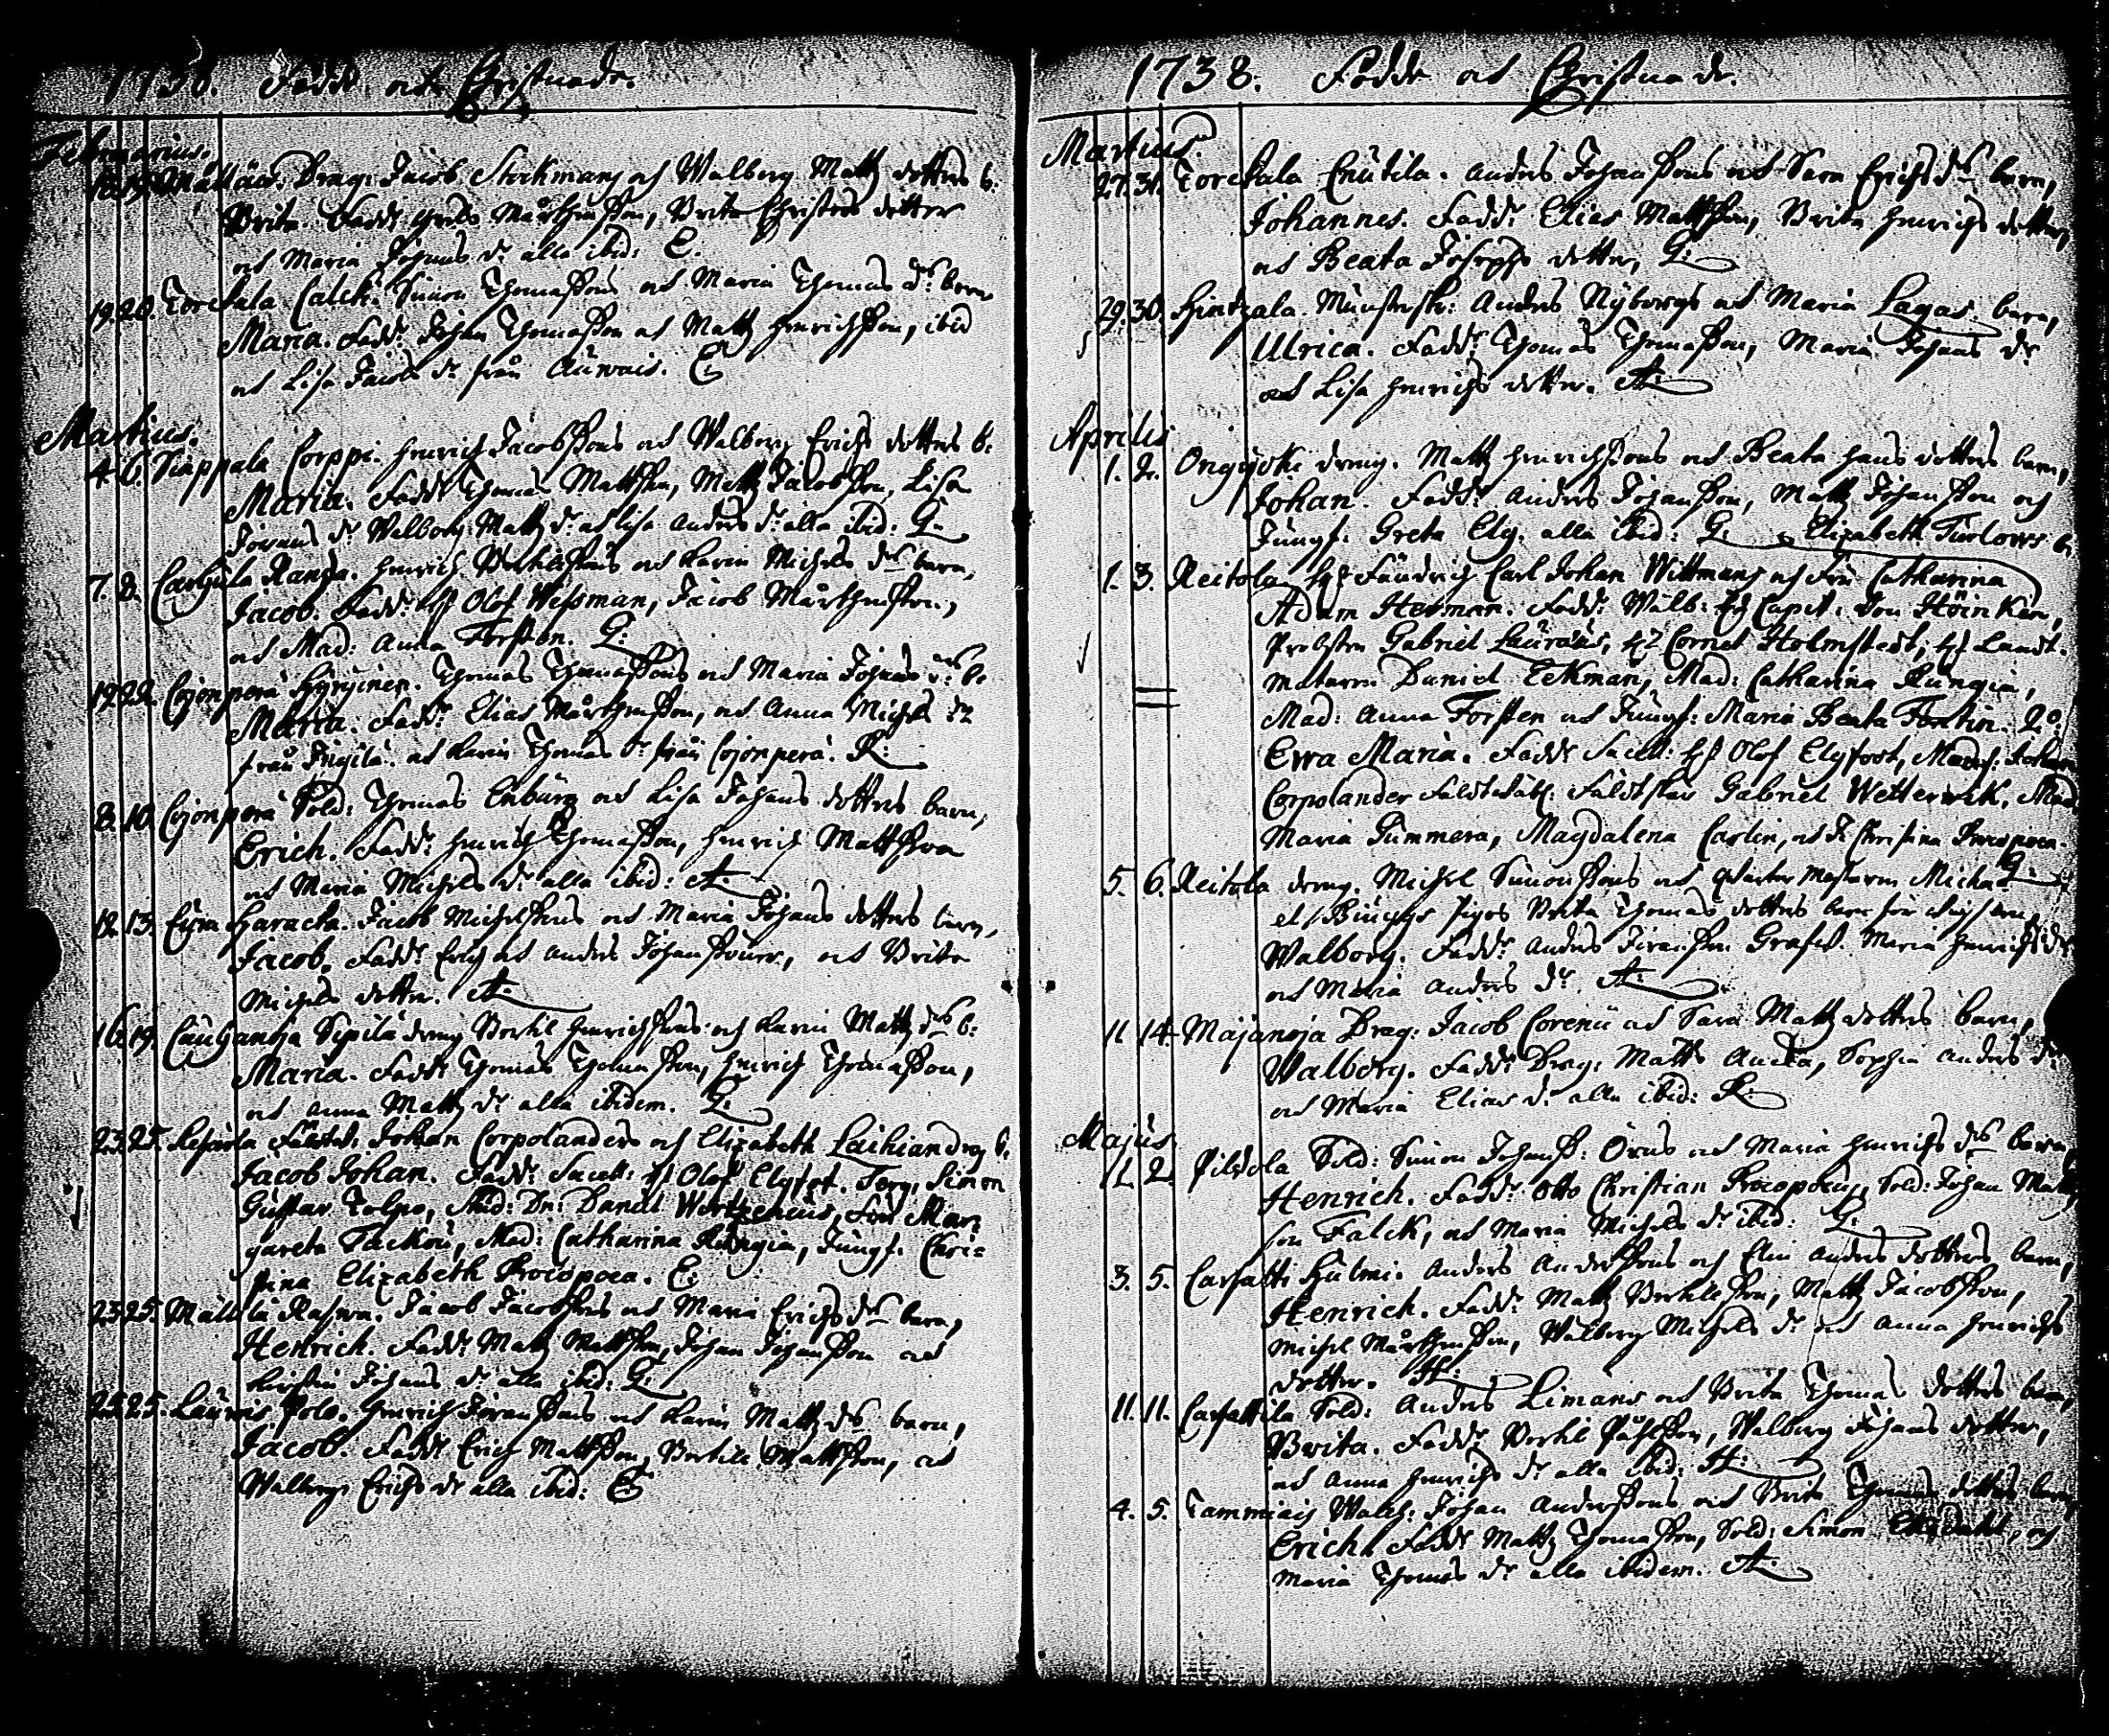 1738. Födde och Christnade.
Februarius.
18. 19. Mällälä. Drag: Jacob Stockmans och Walborg Matts dotters b:
Brita. Fadd: Mårthensson, Brita Christers dotter
och Maria Johans dr alla ibid: C.
19. 20. Torckala Calck. Simon Thomassons och Maria Thomas ds barn
Maria. Fadd: Johan Thomasson och Matts Henrichsson, ibid
och Lisa Jacobs dr från Auwais. C.
Martius.
4. 6. Siappala Corppi. Henrich Jacobssons och Walborg Erichs dotters b:
Maria. Fadd: Thomas Mattsson, Matts Jacobsson, Lisa
Johans dr Walborg Matts dr och Lisa Anders dr alla ibid: G.
7. 8. Henrich Bertilssons och Karin Michels ds barn,
Jacob. Fadd: Hr Olof Wessman, Jacob Mårthensson,
och Mad: Anna Forsten. G.
19. 22. Cojonperä Hyrjinen. Thomas Thomassons och Maria Johans ds b:
Maria. Fadd: Elias Mårthensson, och Anna Michels dr
från och Karin Thomas dr från Cojonperä. R.
8. 10. Cojonperä Sold: Thomas Enburg och Lisa Johans dotters barn,
Erich. Fadd: Henrich Thomasson, Henrich Mattsson
och Maria Michels dr alla ibid: A.
12. 13. Haracka. Jacob Michelssons och Maria Johans dotters barn,
Jacob. Fadd: Erich och Anders Johanssöner, och Brita
Michels dotter. A.
16. 19. Sipilä dreng Bertil Henrichssons och Karin Matts ds b:
Maria. Fadd: Thomas Thomasson, Henrich Thomasson,
och Anna Matts dr alla ibidem. G.
23. 25. Johan Corpolanders och Elizabeth Laihiandrs b.
Jacob Johan. Fadd: Sacell: Hr Olof Elgfot. Serg. Simon
Gustav Tolpo, Stud: Dn: Daniel Wertzenius, Fru Mar
gareta Tackou, Mad: Catharina Rungia, Jungf. Chri=
stina Elizabeth Procopoea. C:
23. 25. Mällälä Jacob Jacobssons och Maria Erichs ds barn,
Henrich. Fadd: Matts Mattsson, Johan Johansson och
Kirstin Johans dr alla ibid: G.
25. 25. Lauwis, Henrich Jöransons och Karin Matts ds barn,
Jacob. Fadd: Erich Mattsson, Bertill Mattsson, och
Walborg Erichs dr alla ibid: C
1738. Födde och Christnade.
Martius.
27. 31. Torckala Cnutila. Anders Johanssons och Sara Erichs ds barn,
Johannes. Fadd: Elias Mattsson, Brita Henrichs dotter,
och Beata Josephs dotter, G.
29. 30. Hintzala. Munsterskr: Anders Nyborgs och Maria Lagas barn,
Ulrica. Fadd: Thomas Thomasson, Maria Johans dr
och Lisa Henrichs dotter. A.
Aprilis
1. 2. Ongzioki dreng. Matts Henrichssons och Beata Hans dotters barn,
Johan. Fadd: Anders Johansson, Matts Johansson och
Jungf: Greta Elg. alla ibid: G. Elizabeth Turlours b:
1. 3. Reitola Hr Fändrich Carl Johan Wittmans och Fru Catharina
Adam Herman. Fadd: Wälb: Hr Capit: von Höinken,
Probsten Gabriel Lauraeus, Hr Cornet Holmstedt, Hr Landt=
mätaren Daniel Eekman, Mad: Catharina Rungia,
Mad: Anna Forsten och Jungf: Maria Beata Forstin. 2o
Ewa Maria. Fadd: Sacell: Hr Olof Elgfoot, Johan
Corpolander Gabriel Wetterwik, Mad
Maria Gummera, Magdalena Carlin, och J. Christina Procopoea.
G.
5. 6. Reitola dreng. Michel Simonssons och Michael
Brita Thomas dotters
Walborg. Fadd: Anders Maria Henrichs dr
och Maria Anders dr. A.
11. 14. Majanoja Drag: Jacob Corenu och Sara Matts dotters barn,
Walborg. Fadd: Drag: Matts Ancka, Sophia Anders dr
och Maria Elias dr alla ibid: R.
Majus
1. 2. Pildola Sold: Simon Johanss: Örns och Maria Henrichs ds barn
Henrich. Fadd: Otto Christian Procopoeus, Sold: Johan Matts
son Falck, och Maria Michels dr ibid: G.
3. 5. Carsatti Hulmi. Anders Anderssons och Elin Anders dotters barn,
Henrich. Fadd: Matts Bertilsson, Matts Jacobsson,
Michel Mårthensson, Walborg Michels dr och Anna Henrichs
dotter. A.
11. 11. Carsattila Sold: Anders Limans och Brita Thomas dotters barn,
Brita. Fadd: Bertil Påhlsson, Walborg Johans dotter,
och Anna Henrichs dr alla ibid: A.
4. 5. Tammiais Johan Anderssons och Brita Thomas dotters barn,
Erich. Fadd: Matts Thomasson, Sold: Simon Ekedahl, och
Maria Thomas dr alla ibidem. A.